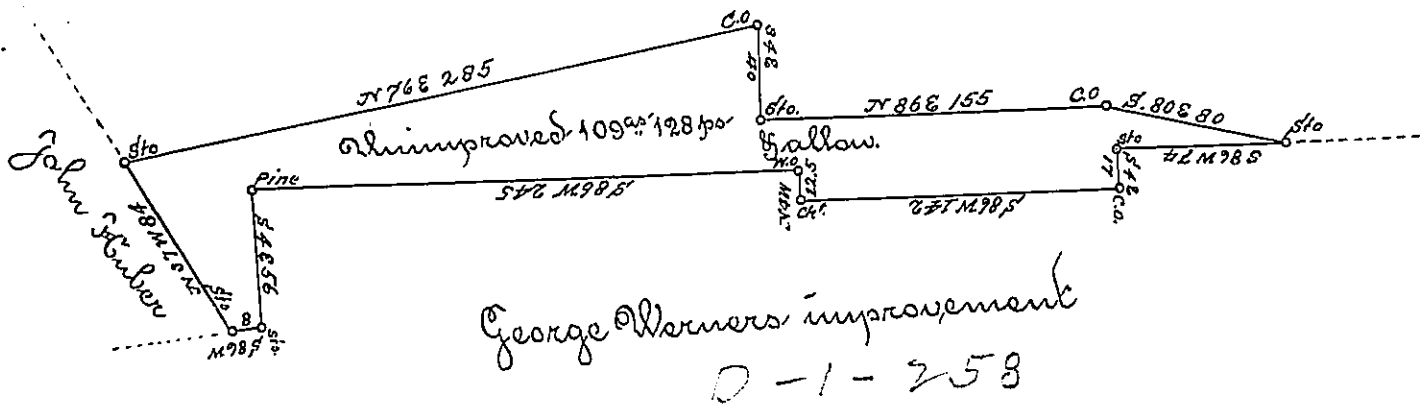 C.O
S 4 E
40
N 76 E 285
Sto.
N 86 E 155
C.O
S. 80 E 80
Sto
Sto
Unimproved 109 as 128 ps
Hallow.
Pine
S 86 W 245
W.O
N 4 W
Cht.
S 86 W 142
C.O.
S 4 E
17
Sto
S 86 W 74
John Huber
N 37 W 84
S 4 E 56
Sto
8
S 86 W
Sto.
George Werners improvement
D-1-258